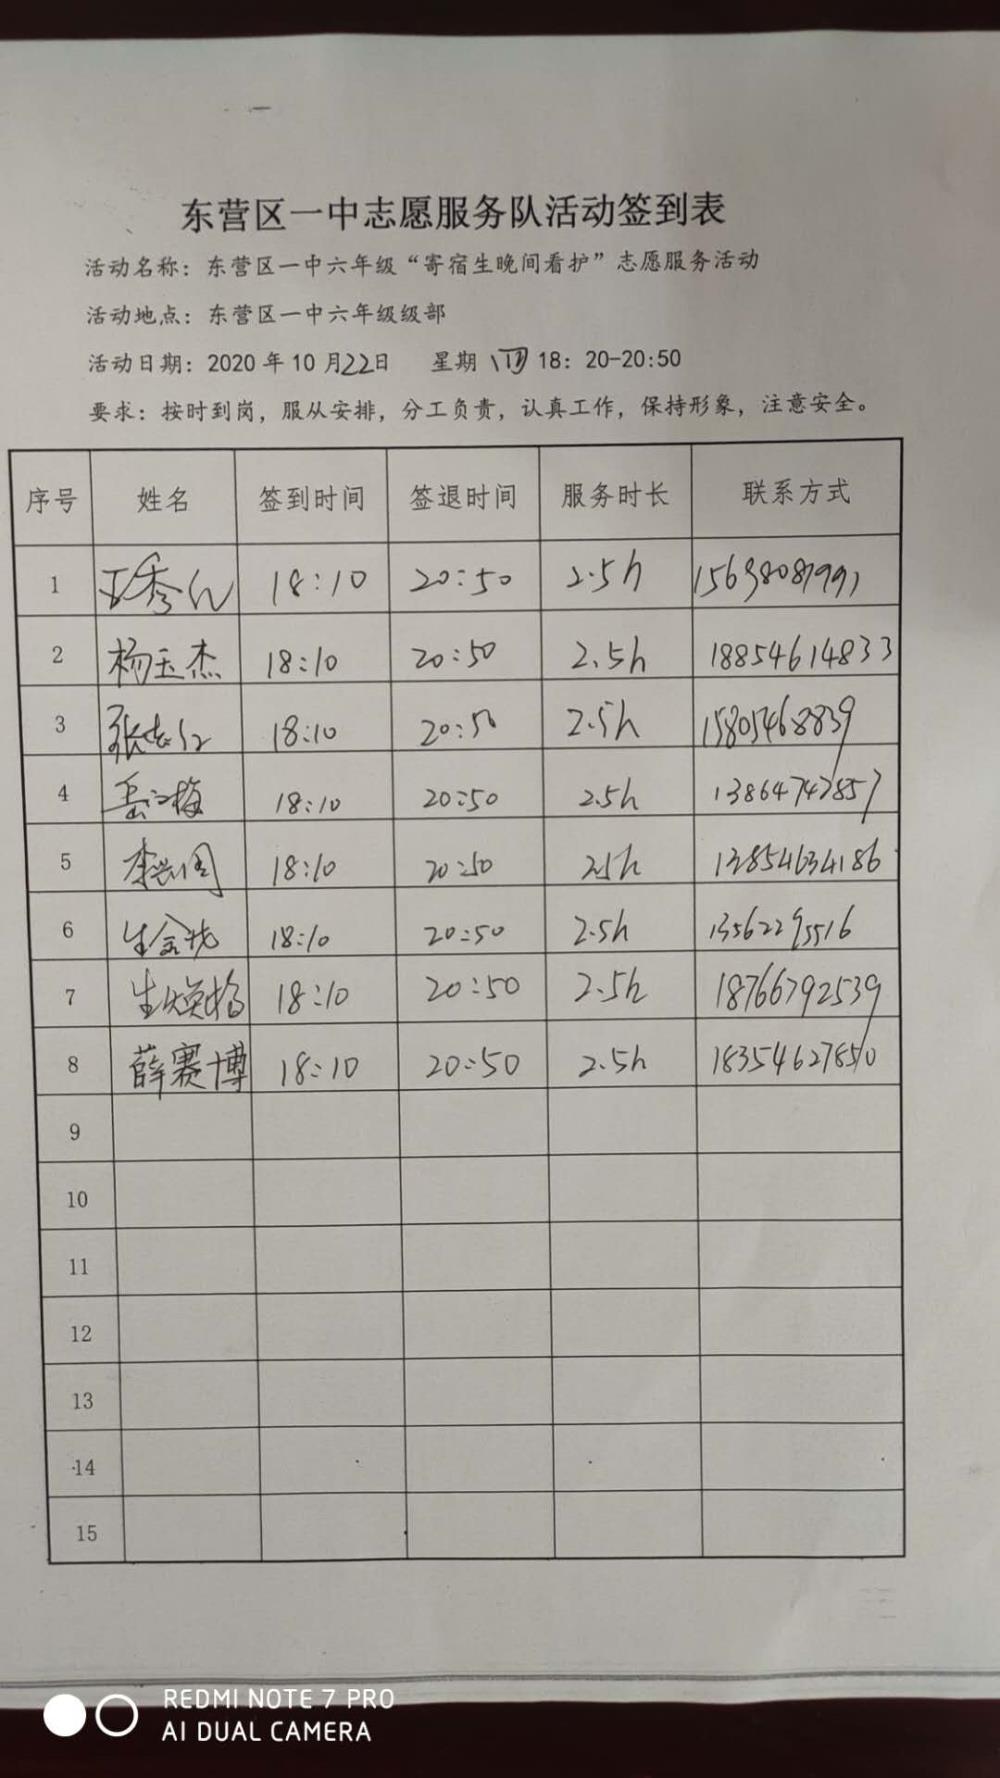 东营区一中志愿服务队活动签到表
活动名称：东营区一中六年级“寄宿生晚间看护”志愿服务活动
活动地点：东营区一中六年级级部
活动日期：2020年10月22日 星期四 18：20-20:50
要求：按时到岗，服从安排，分工负责，认真工作，保持形象，注意安全。
序号 姓名 签到时间 签退时间 服务时长 联系方式
1 18:10 20:50 2.5h
2 杨玉杰 18:10 20:50 2.5h 18854614833
3 18:10 20:50 2.5h 15805468839
4 岳江梅 18:10 20:50 2.5h 13864747857
5 18:10 20:50 2.5h 13854634186
6 18:10 20:50 2.5h 13562295516
7 生焕梅 18:10 20:50 2.5h 18766792539
8 薛赛博 18:10 20:50 2.5h 18354627850
9
10
11
12
13
14
15
REDMI NOTE 7 PRO
AI DUAL CAMERA